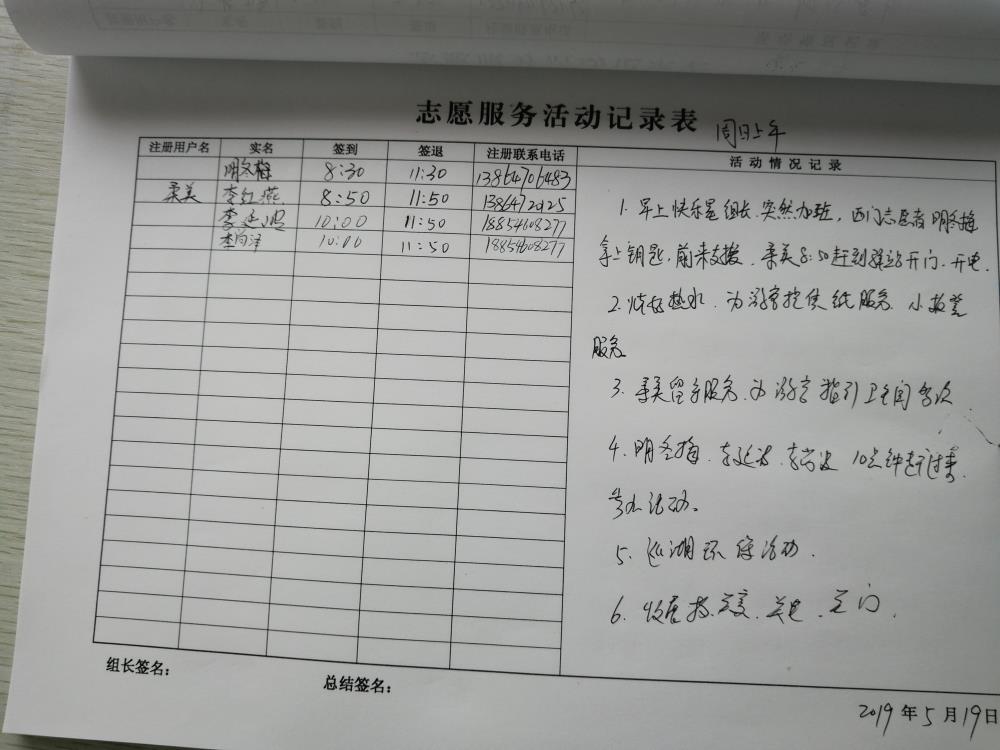 志愿服务活动记录表 周日上午
注册用户名 实名 签到 签退 注册联系电话 活动情况记录
明冬梅 8:30 11:30 13864706483
柔美 李红燕 8:50 11:50
李延 10:00 11:50 18854608277
李尚泽 10:00 11:50 18854608277
1. 早上快乐星组长突然加班,西门志愿者明冬梅
拿上钥匙,前来支援. 柔美8:50赶到驿站开门.开电.
2.烧好热水.为游客提供纸服务.小板凳
服务
3.柔美留守服务.为游客指引卫生间多次
4.明冬梅.李延.李尚 10点钟
活动.
5.巡湖环保活动.
6.收.关电.关门.
组长签名:
总结签名:
2019年5月19日